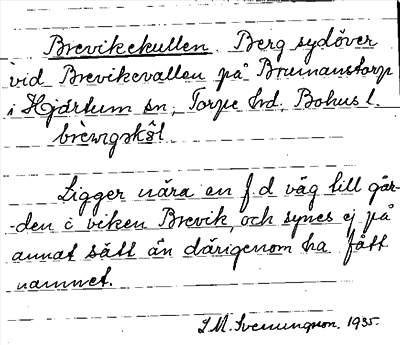 Brevikekullen Berg sydöver
vid Brevikevallen på Brumanstorp
i Hjärtum sn, Torpe hd, Bohus l.
Ligger nära en f d väg till går-
-den i viken Brevik, och synes ej på
annat sätt än därigenom ha fått
namnet.
1935.